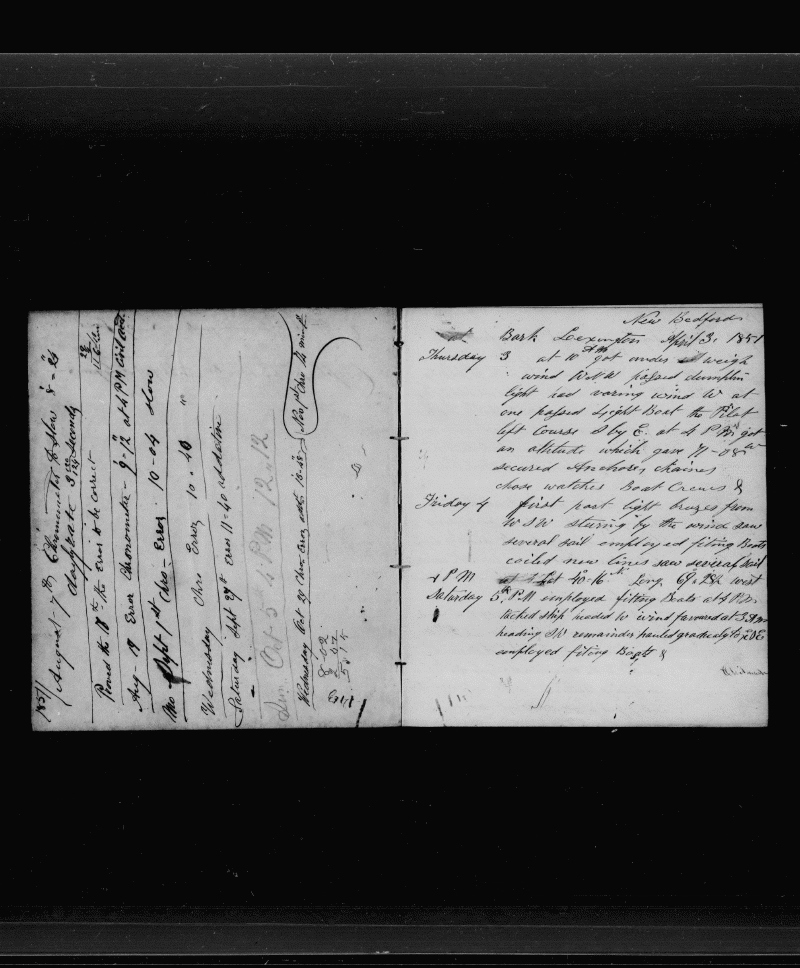 1851
August 7th Chronometer slow 8-24
day rate 3 seconds
Proved the 18th the Error to be correct
Aug - 19 Error Chronometer - 9-12 at 4 PM Civil
Mo Sept 1st Chro - Error 10-04 slow
Wednesday Chro Error 10-40 "
Saturday Sept 27th Error 11-40 additive
Sun. Oct 5 4 P.M. 12-12
Wednesday Oct 29 Chro Error
Nov 1st Chro
New Bedford
Bark Lexington April 3, 1851
Thursday 3 at 10 AM got under weigh
wind passed dumplin
light and wind W at
one passed Light Boat the Pilot
left Course S by E. at 4 P M got
an altitude which gave 71-08 W
secured Anchors chaines
chose watches Boat Crews &
Friday 4 first part light brezes from
W S W sturing by the wind saw
several sail employed fiting Boats
coiled new lines saw several sail
4 P M Lat 40-16 Long 69-28 west
Saturday 5th P.M employed fitting Boats at 4 P.M
tacked ship headed W wind favoured at
heading SW remainder hauled to
employed fiting Boats &